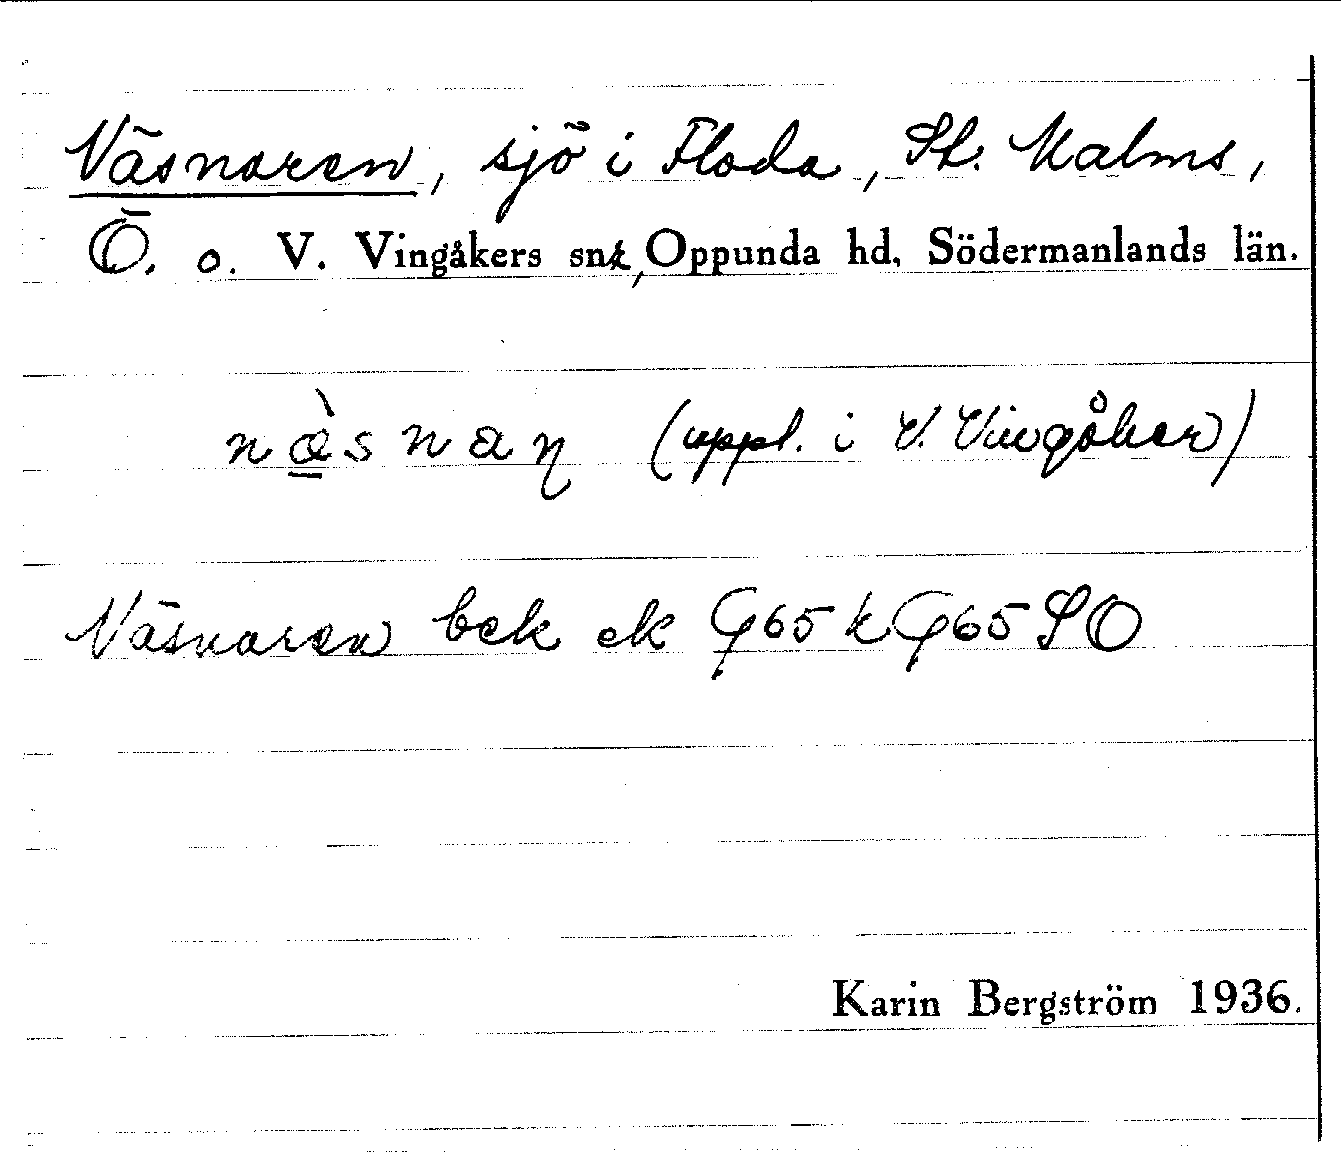 Näsnaren, sjö i Floda, St. Malms,
Ö. o. V. Vingåkers snt, Oppunda hd, Södermanlands län.
næ̀snaɳ (uppt. i V. Vingåker)
Näsnaren bek ek G65k G65 SO
Karin Bergström 1936.